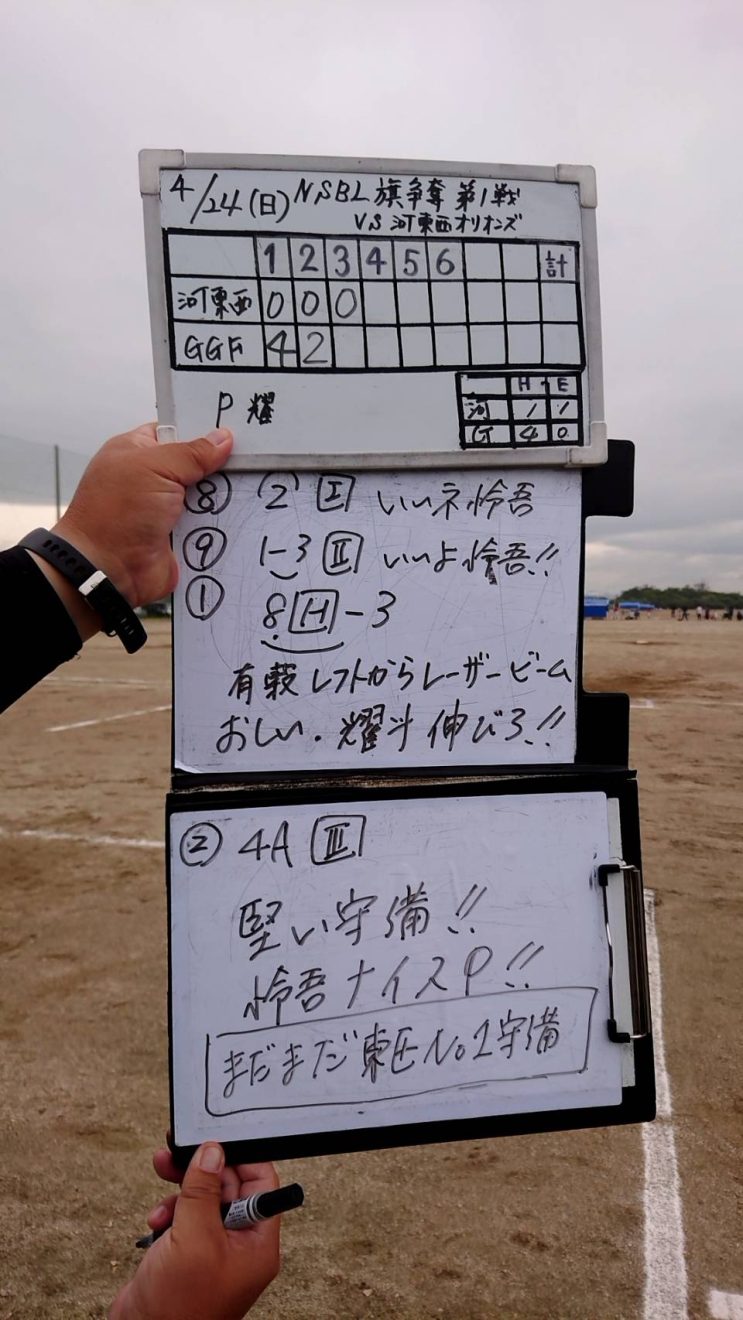 4/24(日) NSBL 旗争奪 第1戦
VS 河東西オリオンズ
1 2 3 4 5 6 計
河東西 0 0 0
GGF 4 2
P 耀
H E
河 1 1
G 4 0
⑧ 2 Ⅰ いいネ怜吾
⑨ 1-3 Ⅱ いいよ怜吾!!
① 8 H-3
有毅 レフトからレーザービーム
おしい。耀斗 伸びろ!!
② 4A Ⅲ
堅い守備!!
怜吾ナイスP!!
まだまだ東區No.1守備